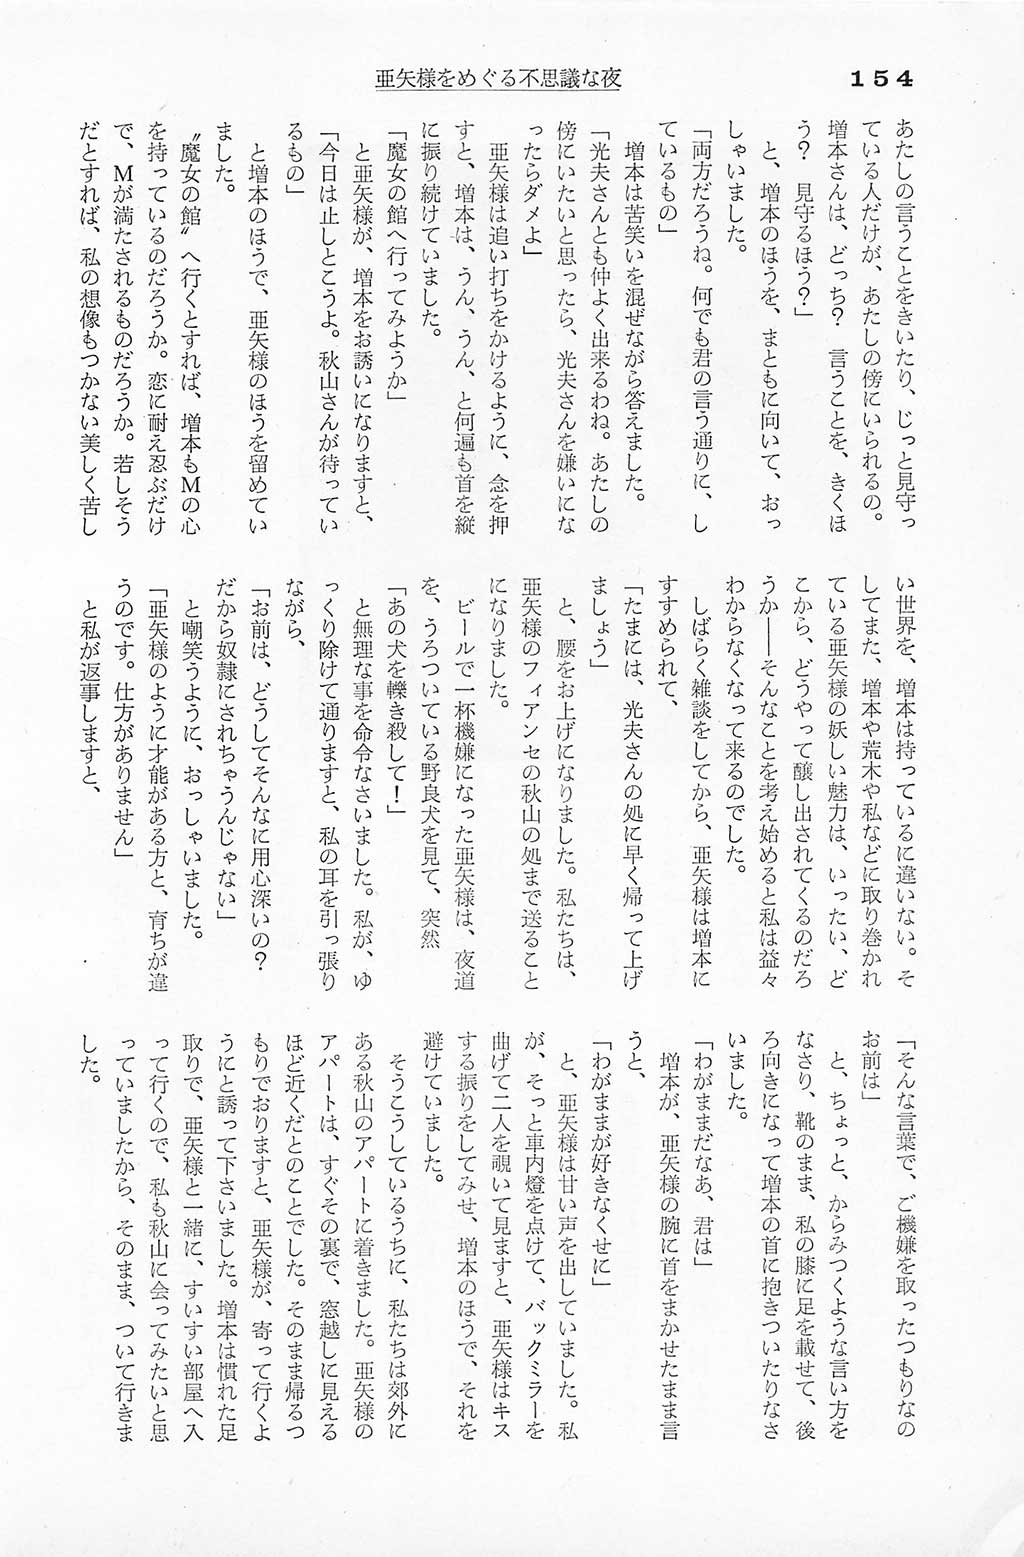 154
亜矢様をめぐる不思議な夜
あたしの言うことをきいたり、じっと見守っ
ている人だけが、あたしの傍にいられるの。
増本さんは、どっち？　言うことを、きくほ
う？　見守るほう？」
　と、増本のほうを、まともに向いて、おっ
しゃいました。
「両方だろうね。何でも君の言う通りに、し
ているもの」
　増本は苦笑いを混ぜながら答えました。
「光夫さんとも仲よく出来るわね。あたしの
傍にいたいと思ったら、光夫さんを嫌いにな
ったらダメよ」
　亜矢様は追い打ちをかけるように、念を押
すと、増本は、うん、うん、と何遍も首を縦
に振り続けていました。
「魔女の館へ行ってみようか」
　と亜矢様が、増本をお誘いになりますと、
「今日は止しとこうよ。秋山さんが待ってい
るもの」
　と増本のほうで、亜矢様のほうを留めてい
ました。
　〝魔女の館〟へ行くとすれば、増本もＭの心
を持っているのだろうか。恋に耐え忍ぶだけ
で、Ｍが満たされるものだろうか。若しそう
だとすれば、私の想像もつかない美しく苦し
い世界を、増本は持っているに違いない。そ
してまた、増本や荒木や私などに取り巻かれ
ている亜矢様の妖しい魅力は、いったい、ど
こから、どうやって醸し出されてくるのだろ
うか――そんなことを考え始めると私は益々
わからなくなって来るのでした。
　しばらく雑談をしてから、亜矢様は増本に
すすめられて、
「たまには、光夫さんの処に早く帰って上げ
ましょう」
　と、腰をお上げになりました。私たちは、
亜矢様のフィアンセの秋山の処まで送ること
になりました。
　ビールで一杯機嫌になった亜矢様は、夜道
を、うろついている野良犬を見て、突然
「あの犬を轢き殺して！」
　と無理な事を命令なさいました。私が、ゆ
っくり除けて通りますと、私の耳を引っ張り
ながら、
「お前は、どうしてそんなに用心深いの？
だから奴隷にされちゃうんじゃない」
　と嘲笑うように、おっしゃいました。
「亜矢様のように才能がある方と、育ちが違
うのです。仕方がありません」
　と私が返事しますと、
「そんな言葉で、ご機嫌を取ったつもりなの
お前は」
　と、ちょっと、からみつくような言い方を
なさり、靴のまま、私の膝に足を載せて、後
ろ向きになって増本の首に抱きついたりなさ
いました。
「わがままだなあ、君は」
　増本が、亜矢様の腕に首をまかせたまま言
うと、
「わがままが好きなくせに」
　と、亜矢様は甘い声を出していました。私
が、そっと車内燈を点けて、バックミラーを
曲げて二人を覗いて見ますと、亜矢様はキス
する振りをしてみせ、増本のほうで、それを
避けていました。
　そうこうしているうちに、私たちは郊外に
ある秋山のアパートに着きました。亜矢様の
アパートは、すぐその裏で、窓越しに見える
ほど近くだとのことでした。そのまま帰るつ
もりでおりますと、亜矢様が、寄って行くよ
うにと誘って下さいました。増本は慣れた足
取りで、亜矢様と一緒に、すいすい部屋へ入
って行くので、私も秋山に会ってみたいと思
っていましたから、そのまま、ついて行きま
した。